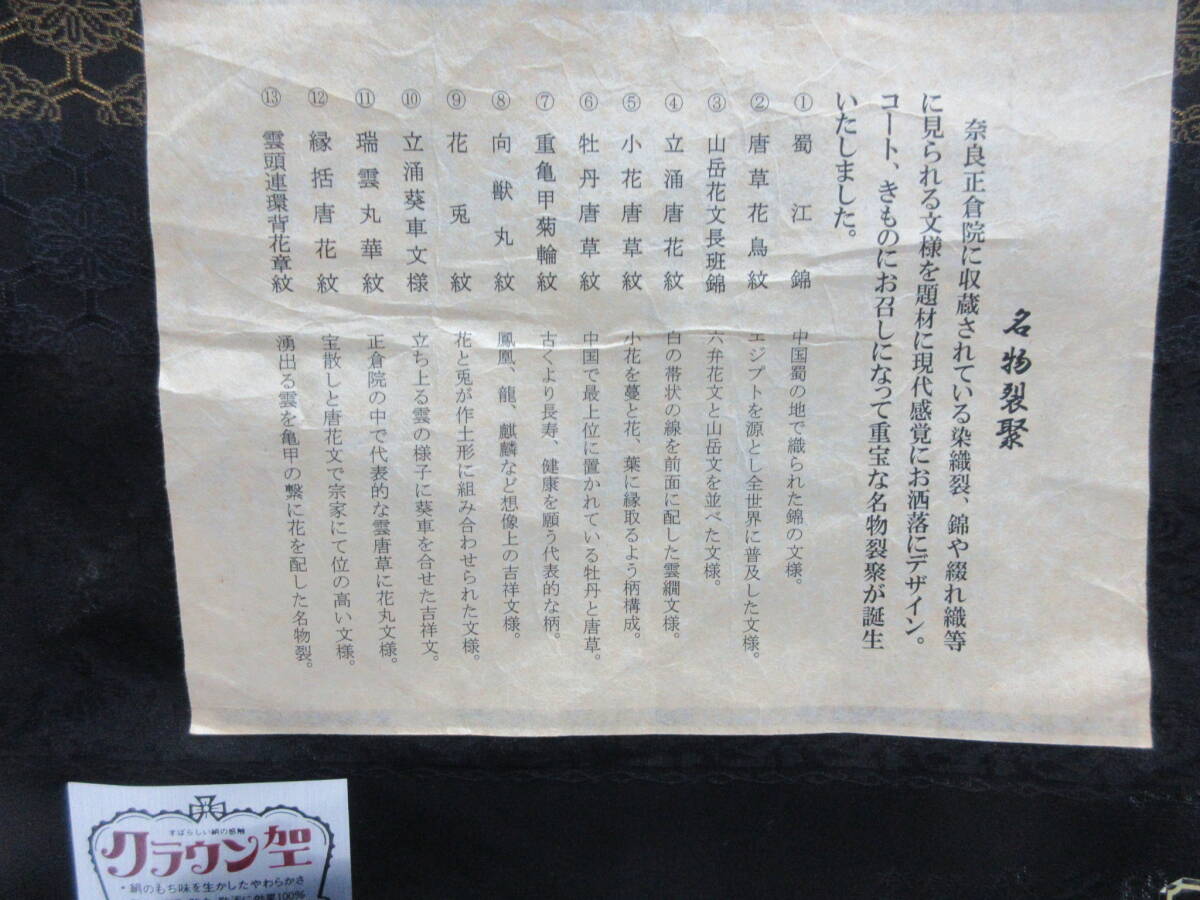 名物裂聚
奈良正倉院に収蔵されている染織裂、錦や綴れ織等
に見られる文様を題材に現代感覚にお洒落にデザイン。
コート、きものにお召しになって重宝な名物裂聚が誕生
いたしました。
① 蜀江錦 中国蜀の地で織られた錦の文様。
② 唐草花鳥紋 エジプトを源とし全世界に普及した文様。
③ 山岳花文長班錦 六弁花文と山岳文を並べた文様。
④ 立涌唐花紋 白の帯状の線を前面に配した雲繝文様。
⑤ 小花唐草紋 小花を蔓と花、葉に縁取るよう柄構成。
⑥ 牡丹唐草紋 中国で最上位に置かれている牡丹と唐草。
⑦ 重亀甲菊輪紋 古くより長寿、健康を願う代表的な柄。
⑧ 向獣丸紋 鳳凰、龍、麒麟など想像上の吉祥文様。
⑨ 花兎紋 花と兎が作土形に組み合わせられた文様。
⑩ 立涌葵車文様 立ち上る雲の様子に葵車を合せた吉祥文。
⑪ 瑞雲丸華紋 正倉院の中で代表的な雲唐草に花丸文様。
⑫ 縁括唐花紋 宝散しと唐花文で宗家にて位の高い文様。
⑬ 雲頭連環背花章紋 湧出る雲を亀甲の繋に花を配した名物裂。
すばらしい絹の感触
クラウン加工
・絹のもち味を生かしたやわらかさ
効果100%